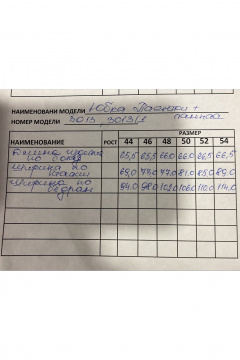 НАИМЕНОВАНИ МОДЕЛИ Юбка +
НОМЕР МОДЕЛИ 3013, 3013/1
РАЗМЕР
НАИМЕНОВАНИЕ РОСТ 44 46 48 50 52 54
Длина изделия по 65,5 65,5 66,0 66,0 66,5 66,5
Ширина по талии 69,0 73,0 77,0 81,0 85,0 89,0
Ширина по бедрам 94,0 98,0 102,0 106,0 110,0 114,0